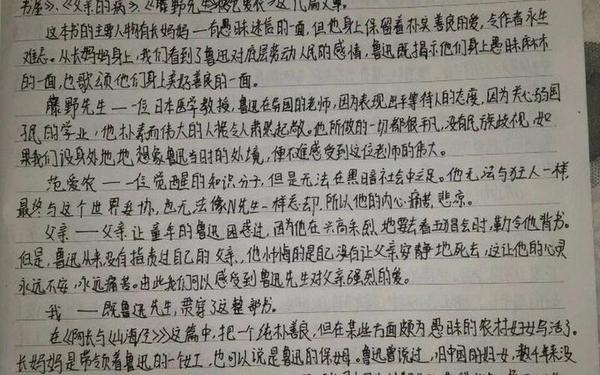 书屋》、《父亲的病》、《藤野先生》、《范爱农》这几篇文章。
这本书的主要人物有长妈妈——有愚昧迷信的一面,但她身上保留着朴实善良的爱,令作者永生
难忘。从长妈妈身上,我们看到了鲁迅对底层劳动人民的感情,鲁迅既揭示他们身上愚昧麻木
的一面,也歌颂他们身上美好善良的一面。
藤野先生——一位日本医学教授,鲁迅在异国的老师,因为表现出平等待人的态度,因为关心弱国
子民的学业,他朴素而伟大的人格令人肃然起敬。他所做的一切都很平凡,没有民族歧视,如
果我们设身处地地想象鲁迅当时的处境,便不难感受到这位老师的伟大。
范爱农——一位觉醒的知识分子,但是无法在黑暗社会中立足。他无法与狂人一样,
最终与这个世界妥协,也无法像N先生一样忘却,所以他的内心痛苦、悲凉。
父亲——父亲让童年的鲁迅困惑过,因为他在兴高采烈地要去看五猖会时,勒令他背书。
但是,鲁迅从来没有指责过自己的父亲,他忏悔的是自己没有让父亲安静地死去,这让他的心灵
永远不安,永远痛苦。由此我们可以感受到鲁迅先生对父亲强烈的爱。
我——既鲁迅先生,贯穿了这整部书。
在《阿长与《山海经》》这篇中,把一个纯朴善良,但在某些方面颇为愚昧的农村妇女写活了。
长妈妈是带领着鲁迅的一个女工,也可以说是鲁迅的保姆。鲁迅曾说过,旧中国的妇女,数千年来没